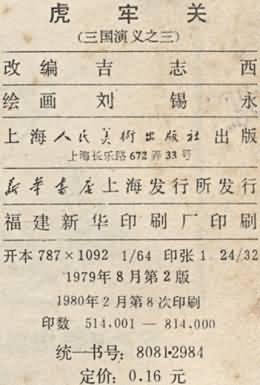 虎牢关
(三国演义之三)
改编 吉志西
绘画 刘锡永
上海人民美術出版社 出版
上海长乐路 672 弄 33 号
新华書店上海发行所发行
福建新华印刷厂印刷
开本 787×1092 1/64 印张 1 24/32
1979年8月第2版
1980年2月第8次印刷
印数 514,001 — 814,000
统一书号: 8081·2984
定价: 0.16 元